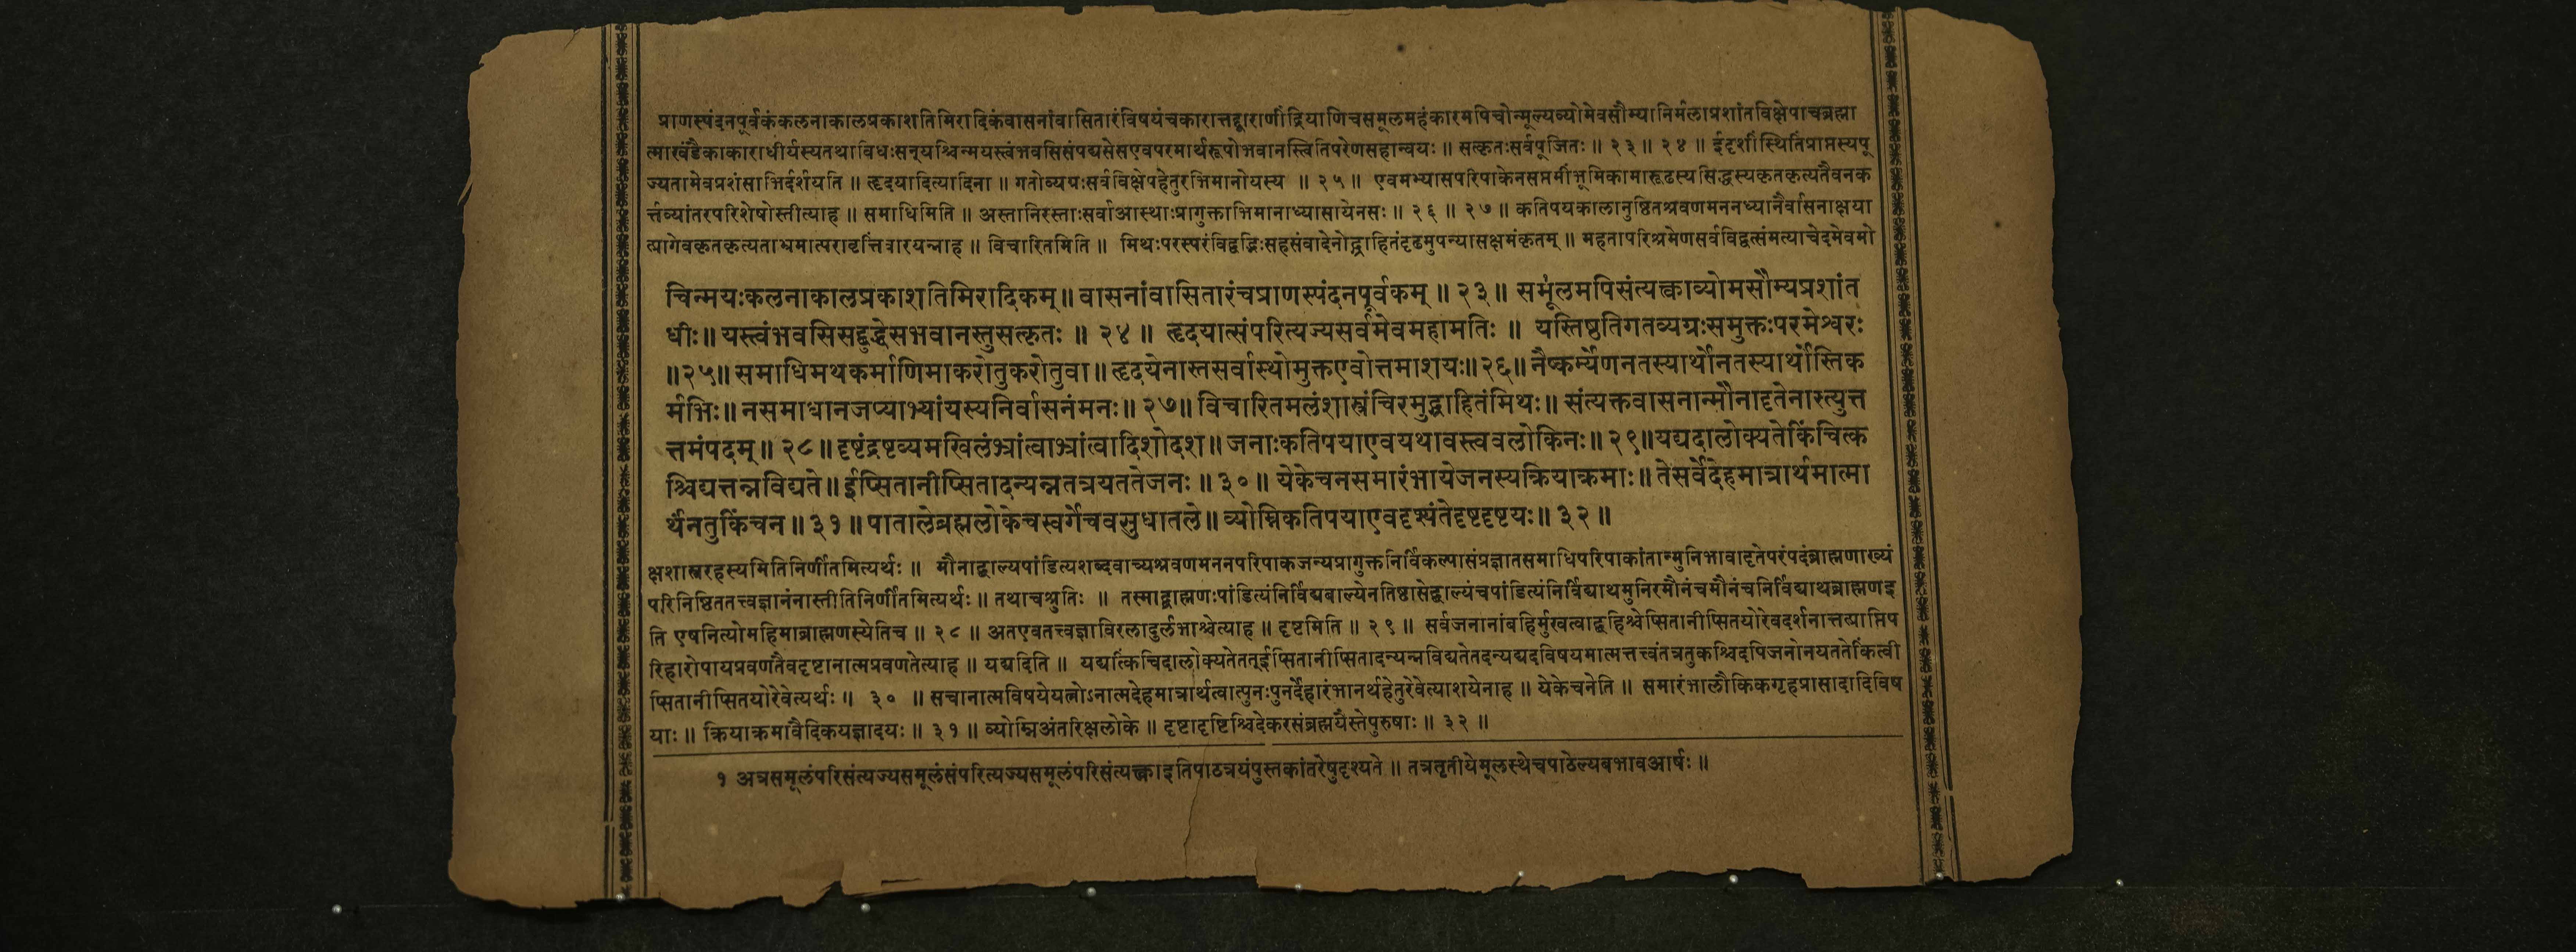 प्राणस्पंदनपूर्वकंकलनाकालप्रकाशतिमिरादिकंवासनांवासितारंविषयंचकारात्तद्द्वाराणींद्रियाणिचसमूलमहंकारमपिचोन्मूल्यव्योमेवसौम्यानिर्मलाप्रशांतविक्षेपाचब्रह्मा
त्माखंडैकाकाराधीर्यस्यतथाविधःसन्यश्चिन्मयस्त्वंभवसिसंपद्यसेसएवपरमार्थरूपोभवानस्त्वितिपरेणसहान्वयः ॥ सत्कृतःसर्वपूजितः ॥ २३ ॥ २४ ॥ ईदृशींस्थितिंप्राप्तस्यपू
ज्यतामेवप्रशंसाभिर्दर्शयति ॥ हृदयादित्यादिना ॥ गतोव्यग्रःसर्वविक्षेपहेतुरभिमानोयस्य ॥ २५ ॥ एवमभ्यासपरिपाकेनसप्तमींभूमिकामारूढस्यसिद्धस्यकृतकृत्यतैवनक
र्त्तव्यांतरपरिशेषोस्तीत्याह ॥ समाधिमिति ॥ अस्तानिरस्ताःसर्वाआस्थाःप्रागुक्ताभिमानाध्यासायेनसः ॥ २६ ॥ २७ ॥ कतिपयकालानुष्ठितश्रवणमननध्यानैर्वासनाक्षया
त्प्रागेवकृतकृत्यताभ्रमात्परावृत्तिंवारयन्नाह ॥ विचारितमिति ॥ मिथःपरस्परंविद्वद्भिःसहसंवादेनोद्ग्राहितंदृढमुपन्यासक्षमंकृतम् ॥ महतापरिश्रमेणसर्वविद्वत्संमत्याचेदमेवमो
चिन्मयःकलनाकालप्रकाशतिमिरादिकम् ॥ वासनांवासितारंचप्राणस्पंदनपूर्वकम् ॥ २३ ॥ समूलमपिसंत्यक्त्वाव्योमसौम्यप्रशांत
धीः ॥ यस्त्वंभवसिसद्बुद्धेसभवानस्तुसत्कृतः ॥ २४ ॥ हृदयात्संपरित्यज्यसर्वमेवमहामतिः ॥ यस्तिष्ठतिगतव्यग्रःसमुक्तःपरमेश्वरः
॥ २५ ॥ समाधिमथकर्माणिमाकरोतुकरोतुवा ॥ हृदयेनास्तसर्वास्थोमुक्तएवोत्तमाशयः ॥ २६ ॥ नैष्कर्म्येणनतस्यार्थोनतस्यार्थोस्तिक
र्मभिः ॥ नसमाधानजप्याभ्यांयस्यनिर्वासनंमनः ॥ २७ ॥ विचारितमलंशास्त्रंचिरमुद्ग्राहितंमिथः ॥ संत्यक्तवासनान्मौनादृतेनास्त्युत्त
त्तमंपदम् ॥ २८ ॥ दृष्टंद्रष्टव्यमखिलंभ्रांत्वाभ्रांत्वादिशोदश ॥ जनाःकतिपयाएवयथावस्त्ववलोकिनः ॥ २९ ॥ यद्यदालोक्यतेकिंचित्क
श्चिद्यत्तन्नविद्यते ॥ ईप्सितानीप्सितादन्यन्नतत्रयततेजनः ॥ ३० ॥ येकेचनसमारंभायेजनस्यक्रियाक्रमाः ॥ तेसर्वेदेहमात्रार्थमात्मा
र्थंनतुकिंचन ॥ ३१ ॥ पातालेब्रह्मलोकेचस्वर्गेचवसुधातले ॥ व्योम्निकतिपयाएवदृश्यंतेदृष्टदृष्टयः ॥ ३२ ॥
क्षशास्त्ररहस्यमितिनिर्णीतमित्यर्थः ॥ मौनाद्बाल्यपांडित्यशब्दवाच्यश्रवणमननपरिपाकजन्यप्रागुक्तनिर्विकल्पासंप्रज्ञातसमाधिपरिपाकांतान्मुनिभावादृतेपरंपदंब्राह्मणाख्यं
परिनिष्ठिततत्त्वज्ञानंनास्तीतिनिर्णीतमित्यर्थः ॥ तथाचश्रुतिः ॥ तस्माद्ब्राह्मणःपांडित्यंनिर्विद्यबाल्येनतिष्ठासेद्बाल्यंचपांडित्यंनिर्विद्याथमुनिरमौनंचमौनंचनिर्विद्याथब्राह्मणइ
ति एषनित्योमहिमाब्राह्मणस्येतिच ॥ २८ ॥ अतएवतत्त्वज्ञाविरलादुर्लभाश्चेत्याह ॥ दृष्टमिति ॥ २९ ॥ सर्वजनानांबहिर्मुखत्वाद्बहिश्चेप्सितानीप्सितयोरेवदर्शनात्तत्प्राप्तिप
रिहारोपायप्रवणतैवदृष्टानात्मप्रवणतेत्याह ॥ यद्यदिति ॥ यद्यत्किंचिदालोक्यतेतत्ईप्सितानीप्सितादन्यन्नविद्यतेतदन्यद्यदविषयमात्मतत्त्वंतत्रतुकश्चिदपिजनोनयततेकिंत्वी
प्सितानीप्सितयोरेवेत्यर्थः ॥ ३० ॥ सचानात्मविषयेयत्नोऽनात्मदेहमात्रार्थत्वात्पुनःपुनर्देहारंभानर्थहेतुरेवेत्याशयेनाह ॥ येकेचनेति ॥ समारंभालौकिकगृहप्रासादादिविष
याः ॥ क्रियाक्रमावैदिकयज्ञादयः ॥ ३१ ॥ व्योम्निअंतरिक्षलोके ॥ दृष्टादृष्टिश्चिदेकरसंब्रह्मयैस्तेपुरुषाः ॥ ३२ ॥
१ अत्रसमूलंपरिसंत्यज्यसमूलंसंपरित्यज्यसमूलंपरिसंत्यक्त्वाइतिपाठत्रयंपुस्तकांतरेषुदृश्यते ॥ तत्रतृतीयेमूलस्थेचपाठेल्यबभावआर्षः ॥